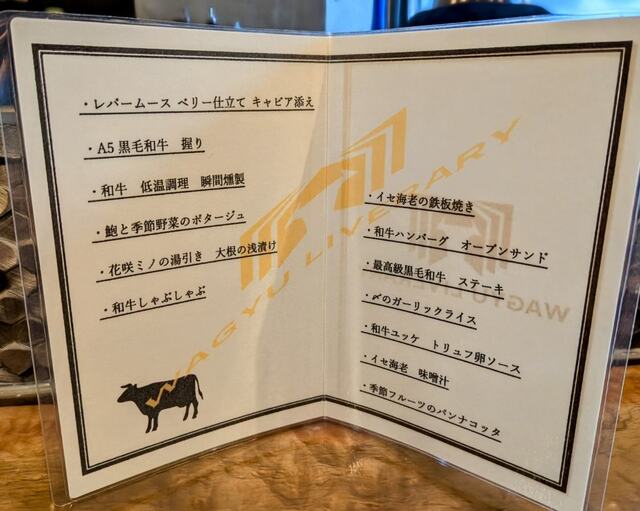 ・レバームース ベリー仕立て キャビア添え
・A5黒毛和牛 握り
・和牛 低温調理 瞬間燻製
・鮑と季節野菜のポタージュ
・花咲ミノの湯引き 大根の浅漬け
・和牛しゃぶしゃぶ
・イセ海老の鉄板焼き
・和牛ハンバーグ オープンサンド
・最高級黒毛和牛 ステーキ
・〆のガーリックライス
・和牛ユッケ トリュフ卵ソース
・イセ海老 味噌汁
・季節フルーツのパンナコッタ
WAGYU LIVE RARY